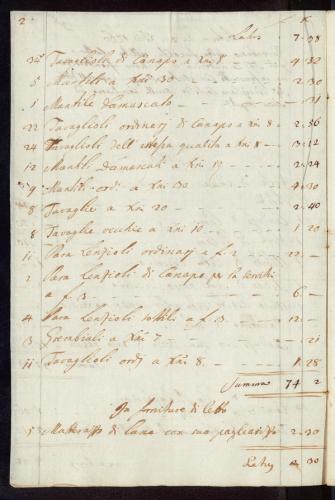 2 f. x.
Lats 7 - 38
34 Tavaglioli di Canapo a Xni 8 - 4 - 32
5 Mantili a Xni 30 - 2 - 30
1 Mantile damascato - - 31
22 Tavaglioli ordinarj di Canapo a xni 8 - 2 - 56
24 Tavaglioli dell' istessa qualità a Xni 8 - 3 - 12
12 Mantili Damascati a Xni 12 - 2 - 24
9 Mantili ord: a Xni 30 - 4 - 30
8 Tavaglie a Xni 20 - 2 - 40
8 Tavaglie vecchie a xni 10 - 1 20
11 Para Lenzioli ordinarj a f. 2 - 22 -
2 Para Lenzioli di Canapo per la
a f. 3 - 6 -
4 Para Lenzioli sottili a f. 3 - 12 -
3 Grembiali a Xni 7 - - 21
11 Tavaglioli ordj a Xni 8 - 1 28
Summa 74 2
In forniture di letto
5 Materazzo di lana con suo pagliarizzo 2 - 30
Latus 2 30